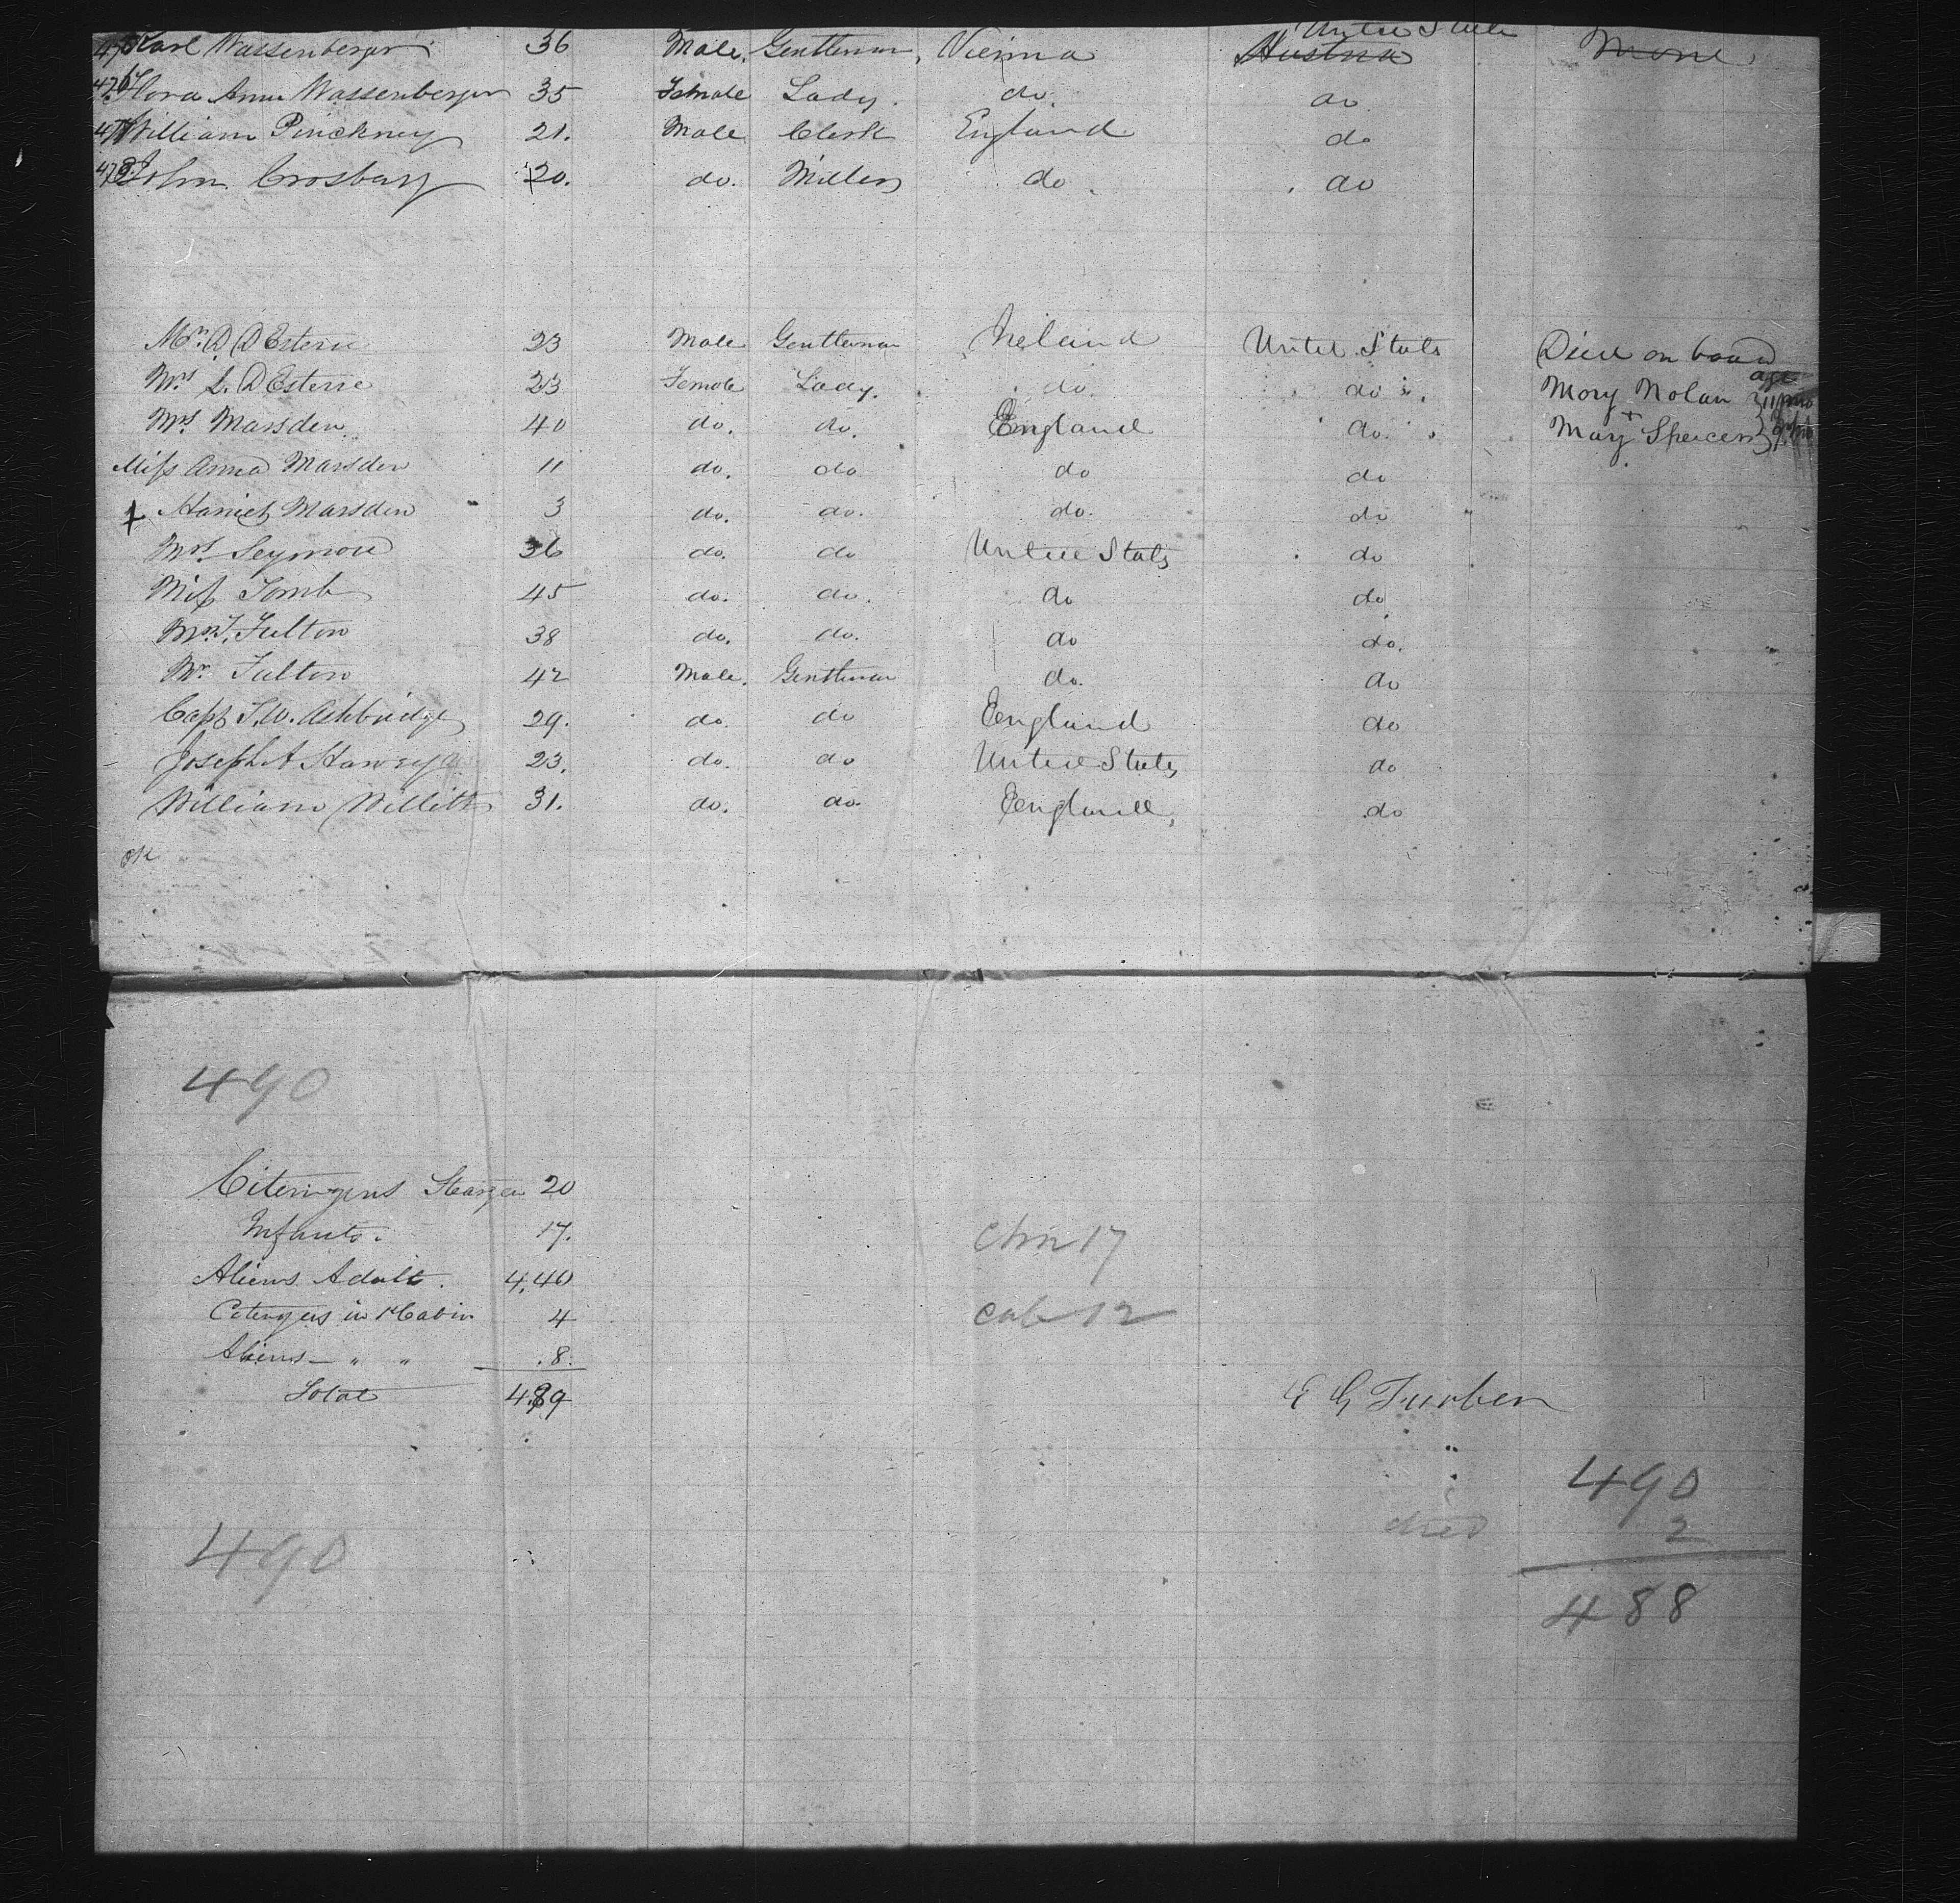 475 Karl Wassenberger 36 Male. Gentleman, Vienna Austria United States None,
476 Flora Anna Wassenberger 35 Female Lady. do. do.
477 William Pinckney 21. Male Clerk England do
478 John Crosbury 20. do. Miller do. do
Mr. D. D'Esterre 23 Male Gentleman Ireland United States Died on board
Mrs L. D'Esterre 23 Female Lady. do. do. Mary Nolan age 11 mo
Mrs Marsden 40 do. do. England do. + Mary Spencer 9 mo
Miss Anna Marsden 11 do. do do do
+ Harriet Marsden 3 do. do. do. do
Mrs Seymour 36 do. do United States do
Miss Tomb 45 do. do. do do
Mrs. Fulton 38 do. do. do do.
Mr. Fulton 42 Male. Gentleman do. do
Capt. T.W. Ashbridge 29. do. do England do
Joseph A 23. do. do United States do
William Willitts 31. do. do. England, do
OK
490
Citeingens Steerage 20
Infants. 17.
chn 17
Aliens Adult. 4,40
Citengens in 1st Cabin 4
cab 12
Aliens — " " .8.
Total 489
E G Furber
490
died 2
490
488